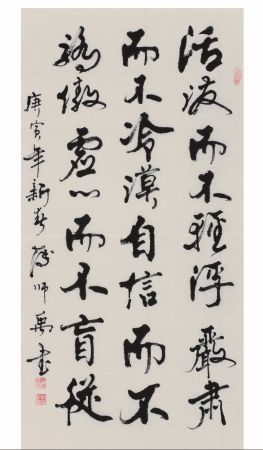 活泼而不轻浮嚴肅
而不冷漠自信而不
驕傲虚心而不盲從
庚寅年新春薄师禹書